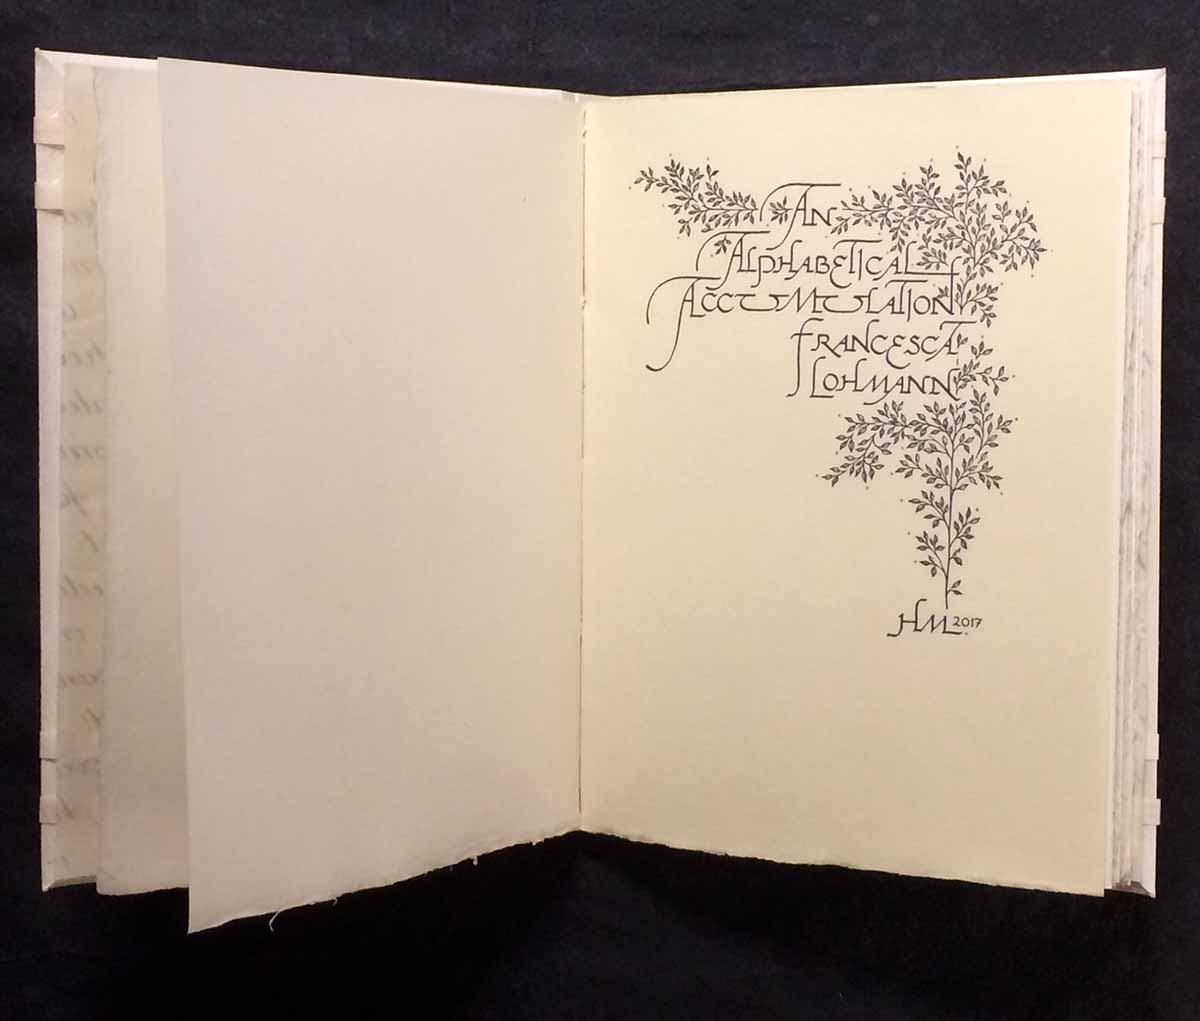 An
Alphabetical
Accumulation
Francesca
Lohmann
HM 2017